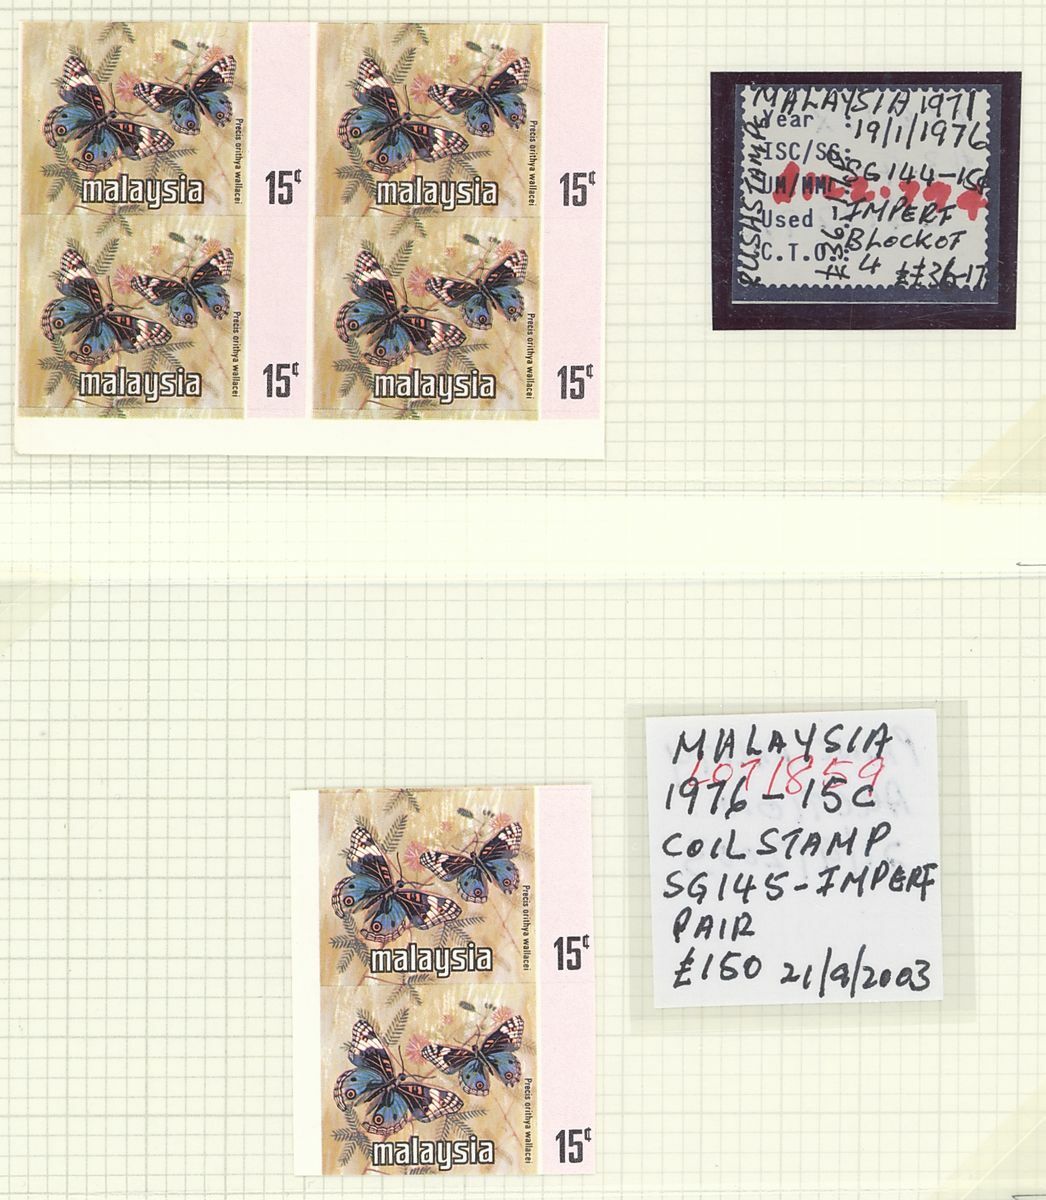 Precis orithya wallacei
malaysia 15¢
Precis orithya wallacei
malaysia 15¢
Precis orithya wallacei
malaysia 15¢
Precis orithya wallacei
malaysia 15¢
MALAYSIA 1971
Year : 19/1/1976
ISC/SG: SG 144-15¢
UM/MM
Used IMPERF
C.T.O.: BLOCK OF
4 ££36-17
Precis orithya wallacei
malaysia 15¢
Precis orithya wallacei
malaysia 15¢
MALAYSIA
LOT 1859
1976-15C
COIL STAMP
SG145-IMPERF
PAIR
£150 21/9/2003